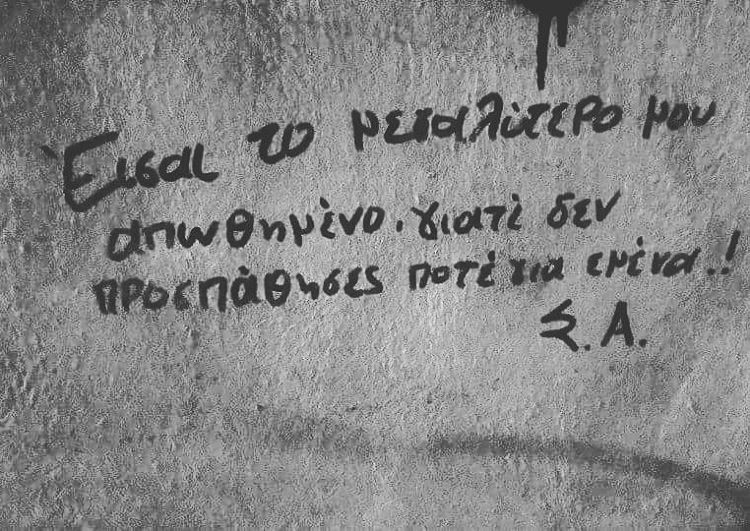 Είσαι το μεγαλύτερο μου
απωθημένο. γιατί δεν
προσπάθησες ποτέ για εμένα.!
Σ. Α.